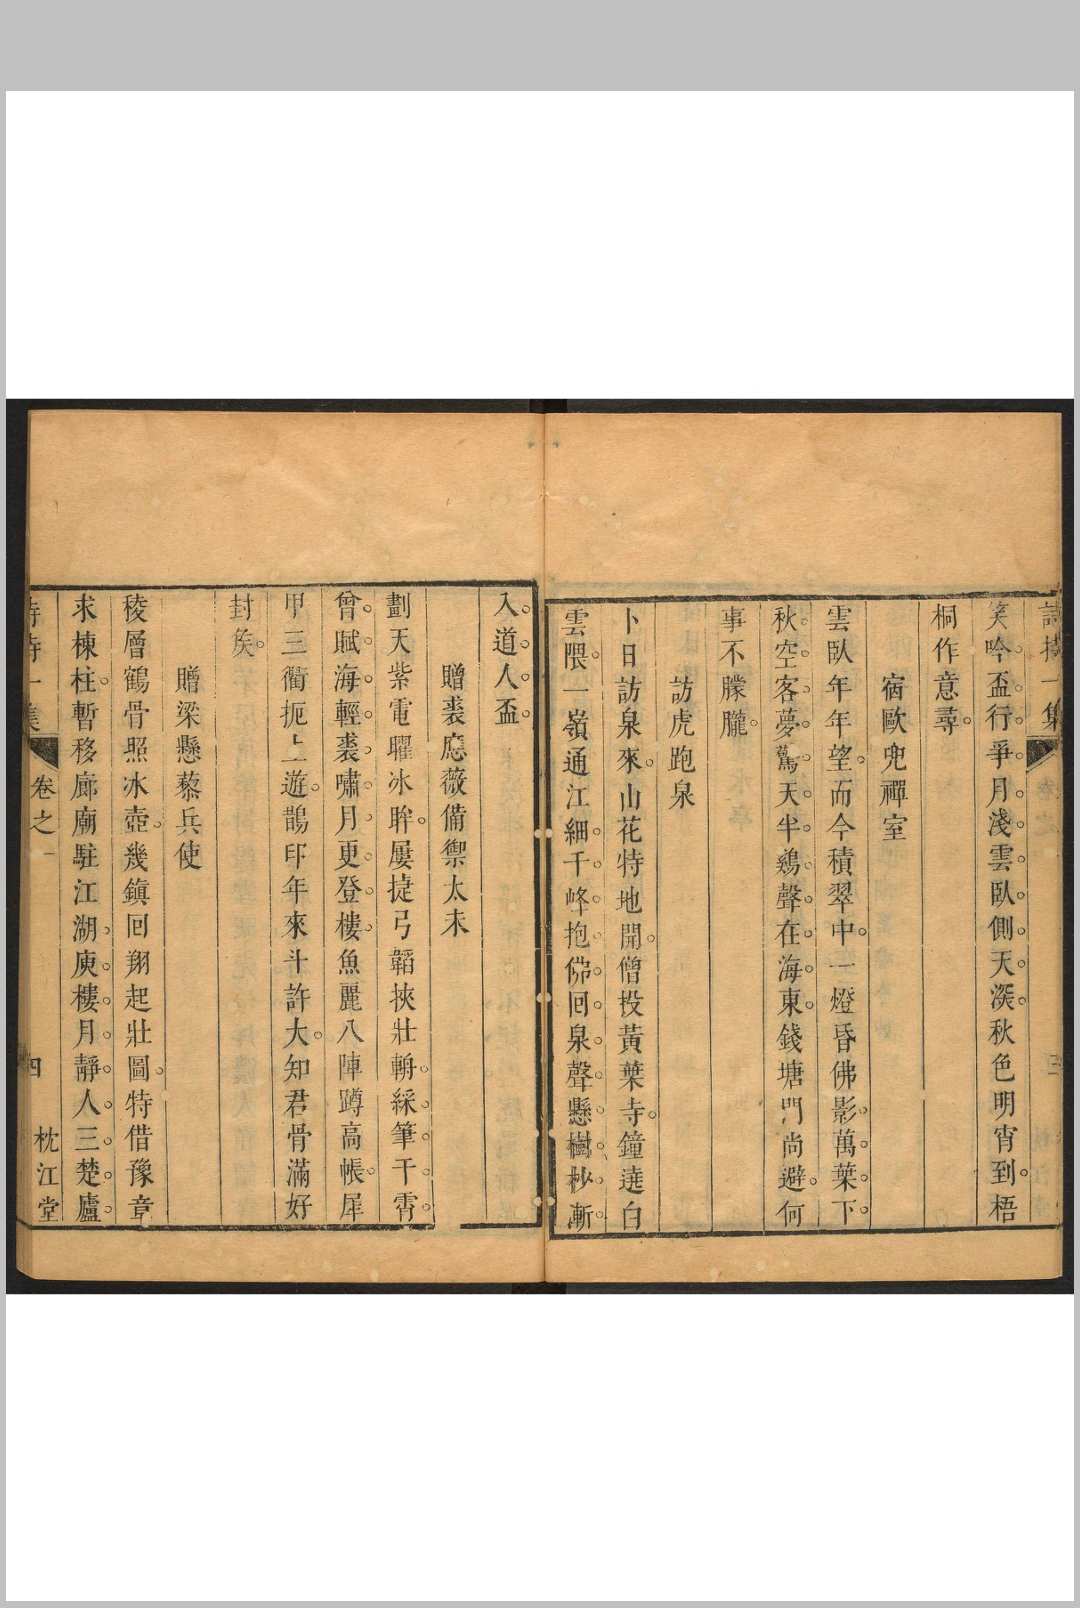 笑吟盃行爭月淺雲臥側天深秋色明宵到梧
桐作意尋
宿歐兜禪室
雲臥年年望而今積翠中一燈昏佛影萬葉下
秋空客夢驚天半鷄聲在海東錢塘門尚避何
事不朦朧
訪虎跑泉
卜日訪泉來山花特地開僧投黃葉寺鐘遶白
雲隈一嶺通江細千峰抱佛回泉聲懸樹杪漸
入道人盃
贈裘應薇備禦太末
劃天紫電耀冰眸屢捷弓韜挾壯輈綵筆干霄
曾賦海輕裘嘯月更登樓魚麗八陣蹲高帳犀
甲三衢扼上遊鵲印年來斗許大知君骨滿好
封矦
贈梁懸藜兵使
稜層鶴骨照冰壺幾鎮回翔起壯圖特借豫章
求棟柱暫移廊廟駐江湖庾樓月靜人三楚廬
卷之一
四
枕江堂